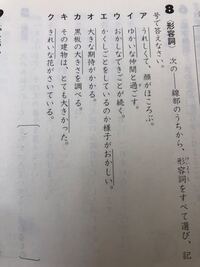 8 形容詞 次の――線部のうちから、形容詞をすべて選び、記
号で答えなさい。
ア うれしくて、顔がほころぶ。
イ ゆかいな仲間と過ごす。
ウ おかしなできごとが続く。
エ かくしごとをしているのか様子がおかしい。
オ 大きな期待がかかる。
カ 黒板の大きさを調べる。
キ その建物は、とても大きかった。
ク きれいな花がさいている。